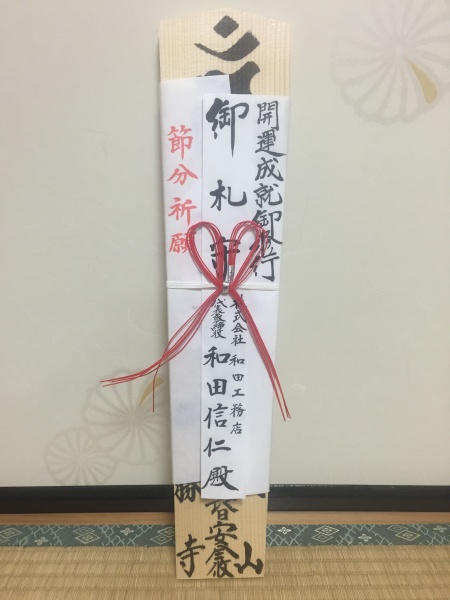 開運成就御修行
御札守
株式会社 和田工務店
代表取締役
和田信仁殿
節分祈願
山
安
寺